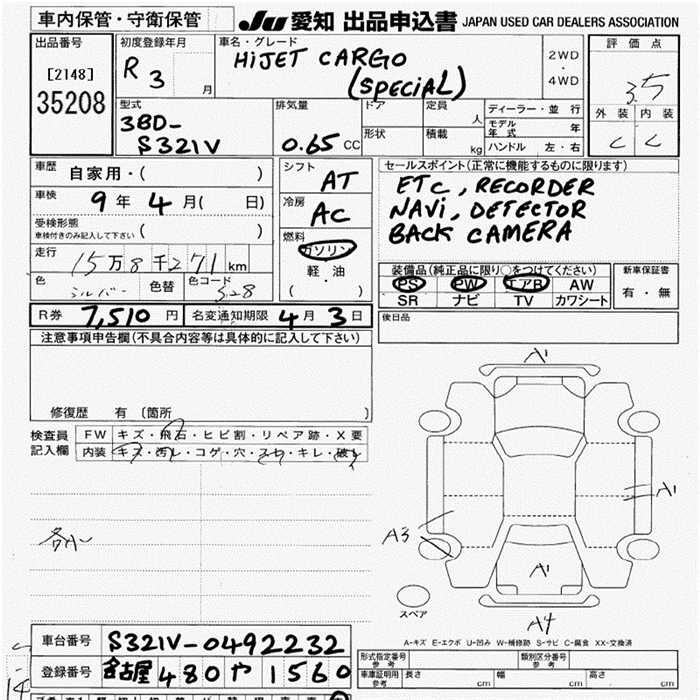 車内保管・守衛保管
JU 愛知 出品申込書 JAPAN USED CAR DEALERS ASSOCIATION
出品番号
[2148]
35208
初度登録年月
R 3 月
車名・グレード
HIJET CARGO
(SPECIAL)
2WD
・
4WD
評価点
3.5
外装 内装
C C
型式
3BD-
S321V
排気量
0.65 CC
ドア
形状
定員
人
積載
kg
ディーラー・並行
モデル年式 年
ハンドル 左・右
車歴 自家用・( )
車検 9年 4月( 日)
受検形態
車検付きのみ記入して下さい ( )
走行
15万8千271 km
色 シルバー 色替 色コード S28
シフト
AT
冷房
AC
燃料
ガソリン
軽・油
( )
セールスポイント(正常に機能するものに限ります)
ETC, RECORDER
NAVI, DETECTOR
BACK CAMERA
装備品(純正品に限り○をつけてください)
PS PW エアB AW
SR ナビ TV カワシート
新車保証書
有・無
R券 7,510 円 名変通知期限 4月3日
後日品
注意事項申告欄(不具合内容等は具体的に記入して下さい)
修復歴 有 〔箇所 〕
検査員
記入欄
FW キズ・飛石・ヒビ割・リペア跡・X要
内装 キズ・汚レ・コゲ・穴・スレ・キレ・破レ
各小
A1
A1
A3
A1
A4
スペア
A-キズ E-エクボ U-凹み W-補修跡 S-サビ C-腐食 XX-交換済
車台番号 S321V-0492232
登録番号 名古屋 480 や 1560
形式指定番号
参考
類別区分番号
参考
車庫証明用
参考
長さ cm 幅 cm 高さ cm